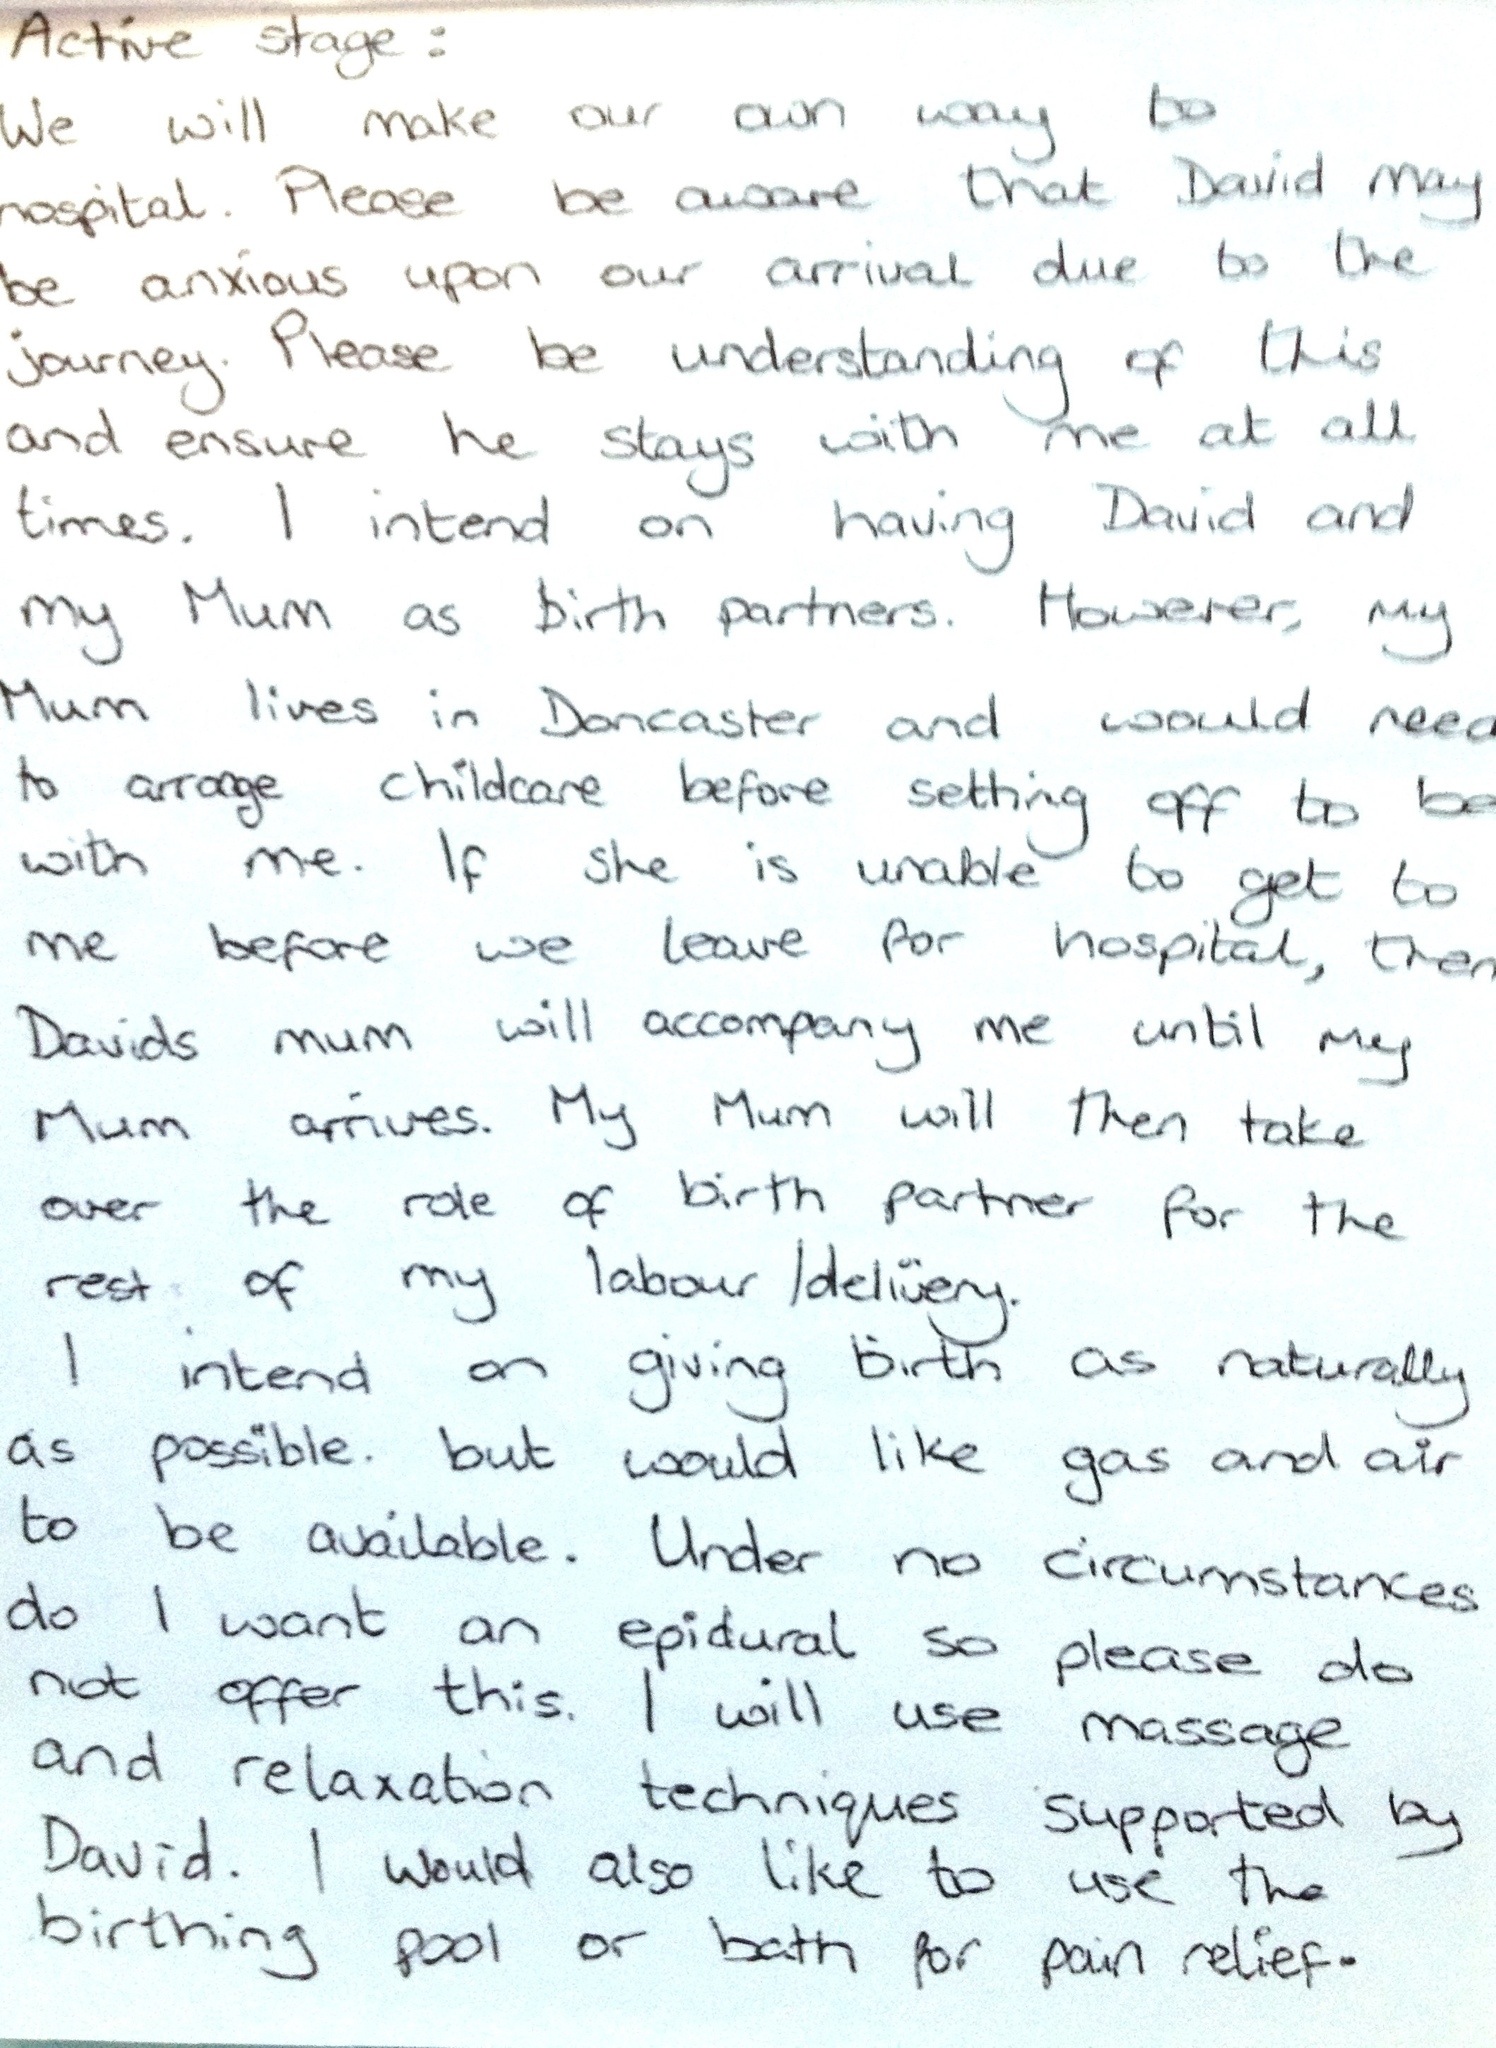 Active stage:
We will make our own way to
hospital. Please be aware that David may
be anxious upon our arrival due to the
journey. Please be understanding of this
and ensure he stays with me at all
times. I intend on having David and
my Mum as birth partners. However, my
Mum lives in Doncaster and would need
to arrange childcare before setting off to be
with me. If she is unable to get to
me before we leave for hospital, then
Davids mum will accompany me until my
Mum arrives. My Mum will then take
over the role of birth partner for the
rest of my labour/delivery.
I intend on giving birth as naturally
as possible. but would like gas and air
to be available. Under no circumstances
do I want an epidural so please do
not offer this. I will use massage
and relaxation techniques supported by
David. I would also like to use the
birthing pool or bath for pain relief.